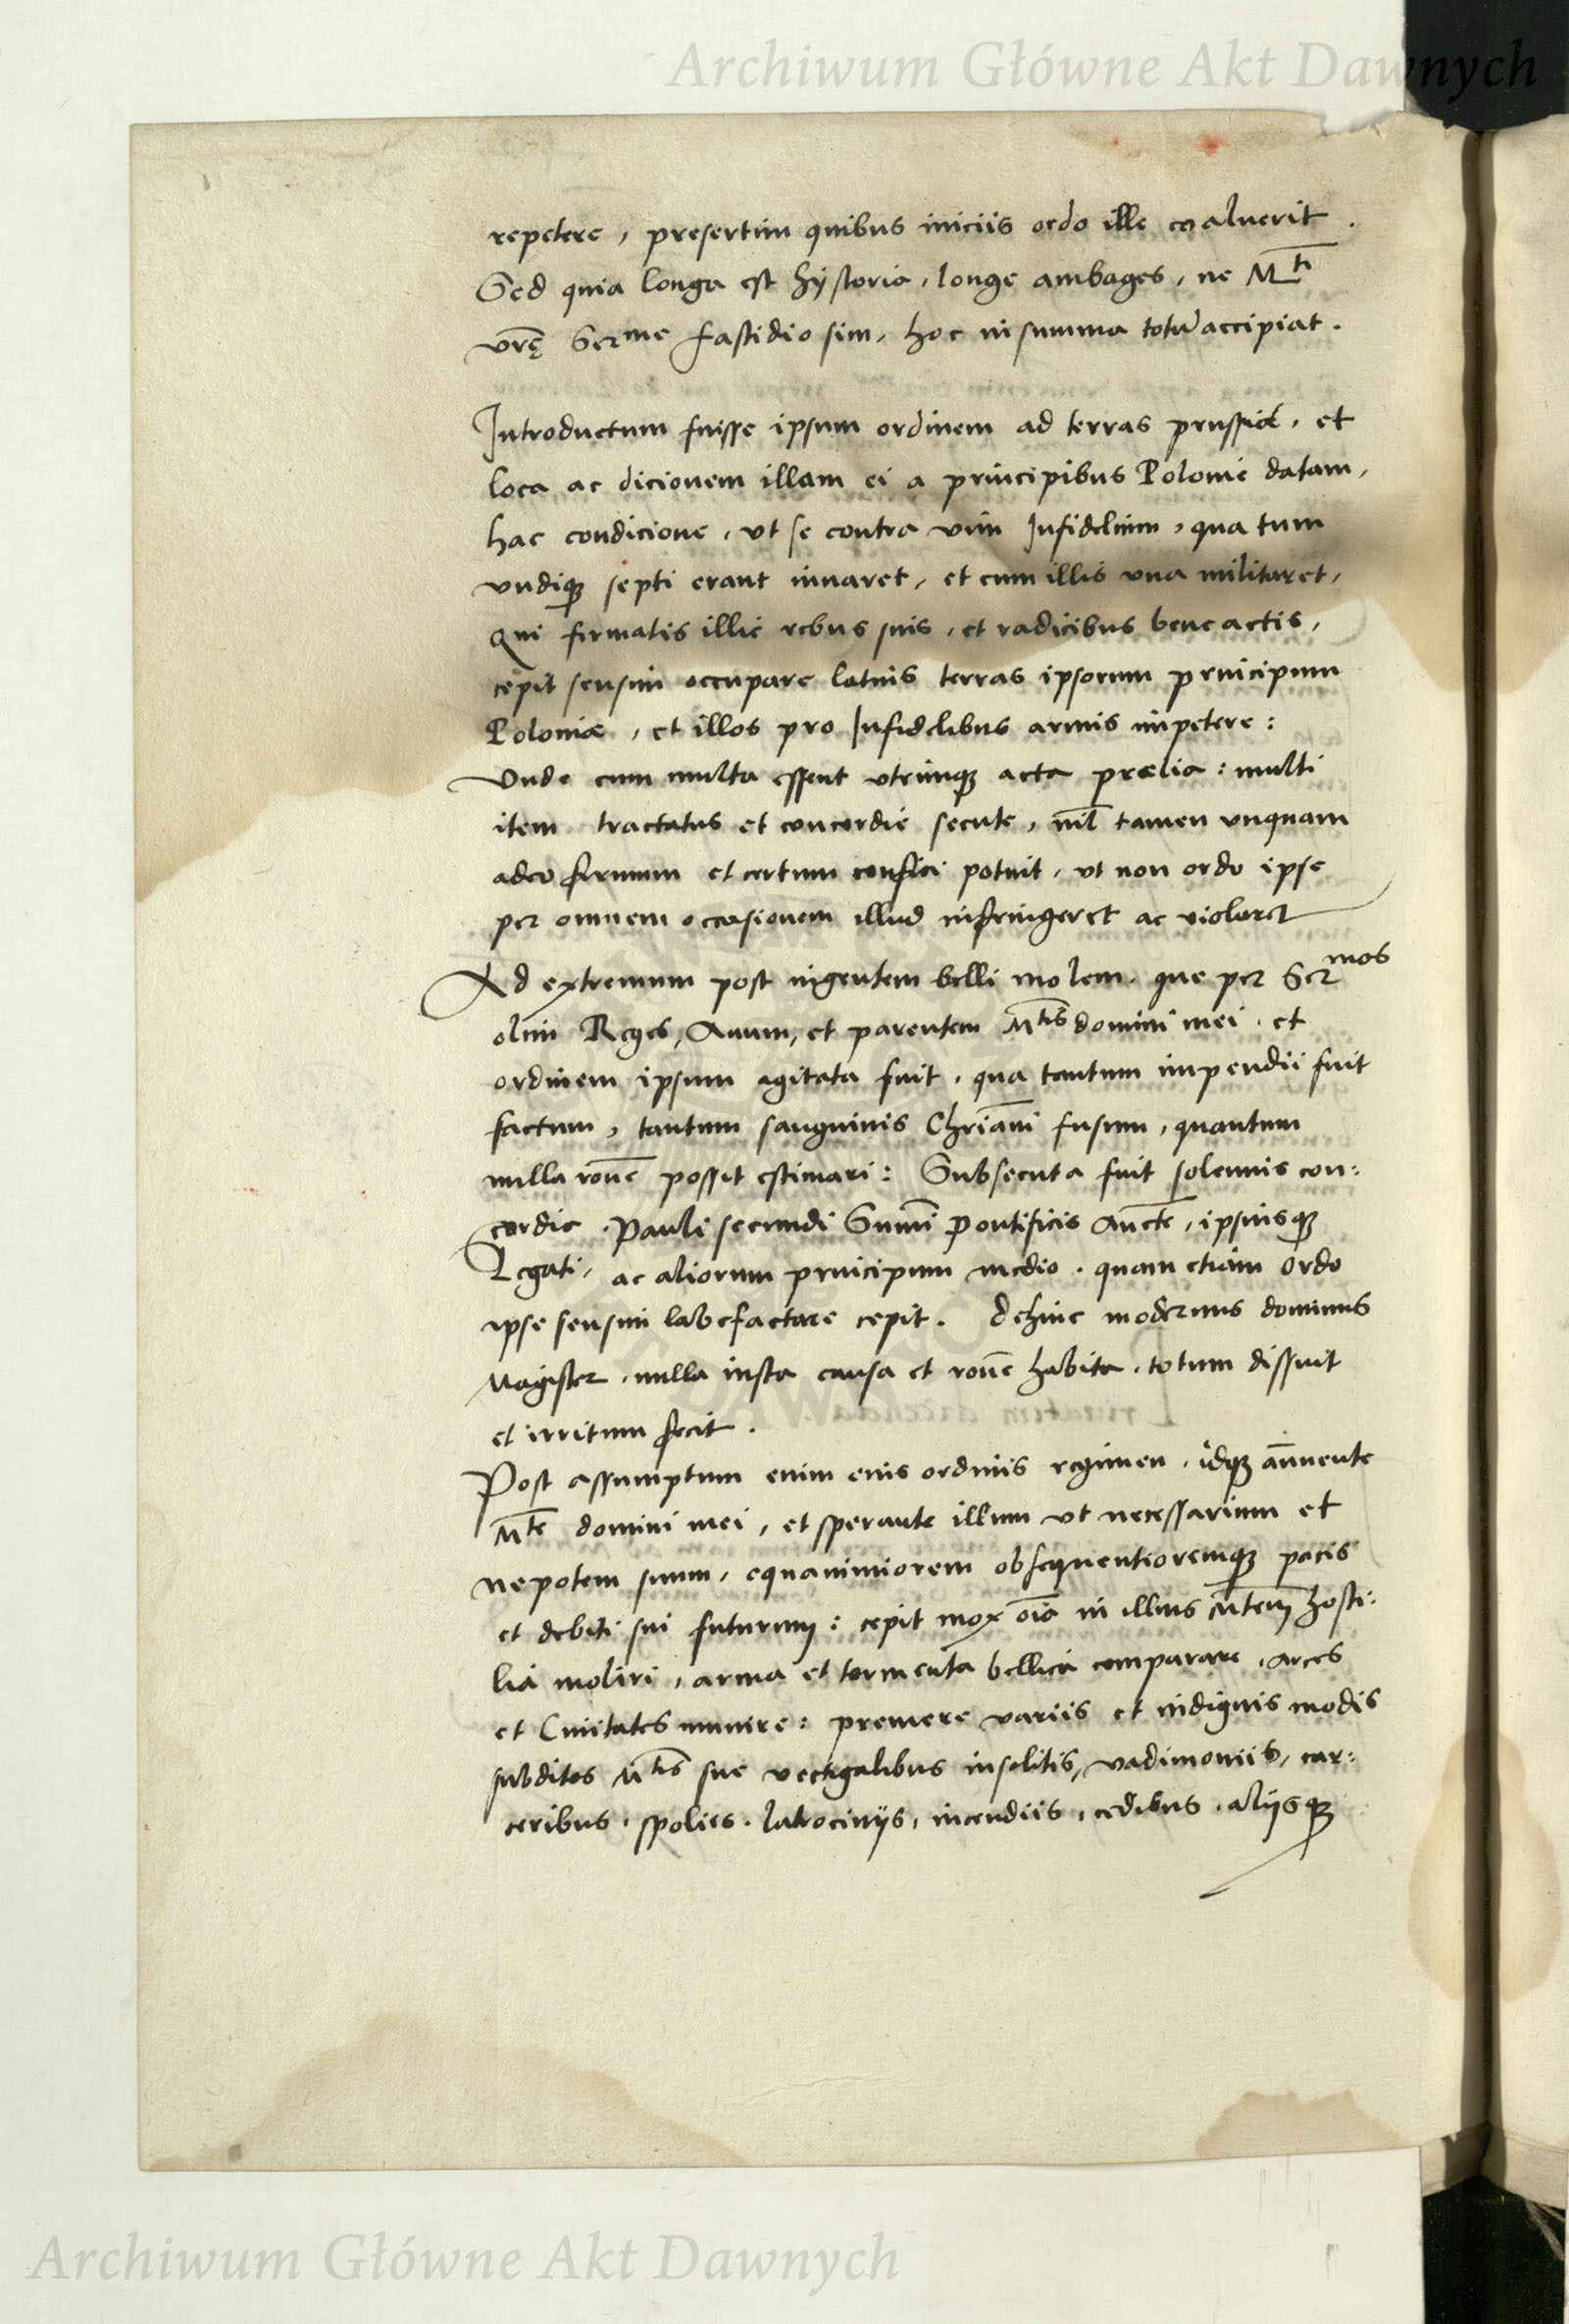 Archiwum Główne Akt Dawnych
repetere, presertim quibus iniciis ordo ille coaluerit.
Sed quia longa est hystoria, longe ambages, ne M^ti
vrę Ser^me fastidio sim, hoc in summa totū accipiat.
Introductum fuisse ipsum ordinem ad terras prussiæ, et
loca ac dicionem illam ei a principibus Polonie datam,
hac condicione, ut se contra vim Infidelium, qua tum
undiqꝫ septi erant iuvaret, et cum illis una militaret,
Qui firmatis illic rebus suis, et radicibus bene actis,
cepit sensim occupare latius terras ipsorum principum
Poloniæ, et illos pro Infidelibus armis impetere:
Unde cum multa essent utrimqꝫ acta prælia: multi
item tractatus et concordie secute, nīl tamen unquam
adeo firmum et certum confici potuit, ut non ordo ipse
per omnem occasionem illud infringeret ac violaret
Ad extremum post ingentem belli molem, que per Ser^mos
olim Reges, Avum, et parentem M^tis domini mei, et
ordinem ipsum agitata fuit, qua tantum impendii fuit
factum, tantum sanguinis Chriāni fusum, quantum
nulla rōne possit estimari: Subsecuta fuit solennis con:
cordia. Pauli secundi Sum̄i pontificis Auc̄te, ipsiusqꝫ
Legati, ac aliorum principum medio. quam etiam Ordo
ipse sensim labefactare cepit. Dehinc modernus dominus
Magister, nulla iusta causa et rōne habita, totum dissuit
et irritum fecit.
Post assumptum enim eius ordinis regimen, idqꝫ annuente
M^te domini mei, et sperante illum ut necessarium et
nepotem suum, equanimiorem obsequentioremqꝫ pacis
et debiti sui futurum: cepit mox oīa in illius M̄tem hosti:
lia moliri, arma et tormenta bellica comparare, arces
et Civitates munire: premere variis et indignis modis
subditos M^tis sue vectigalibus insolitis, vadimoniis, car:
ceribus, spoliis, latrociniis, incendiis, cedibus, aliisqꝫ
Archiwum Główne Akt Dawnych